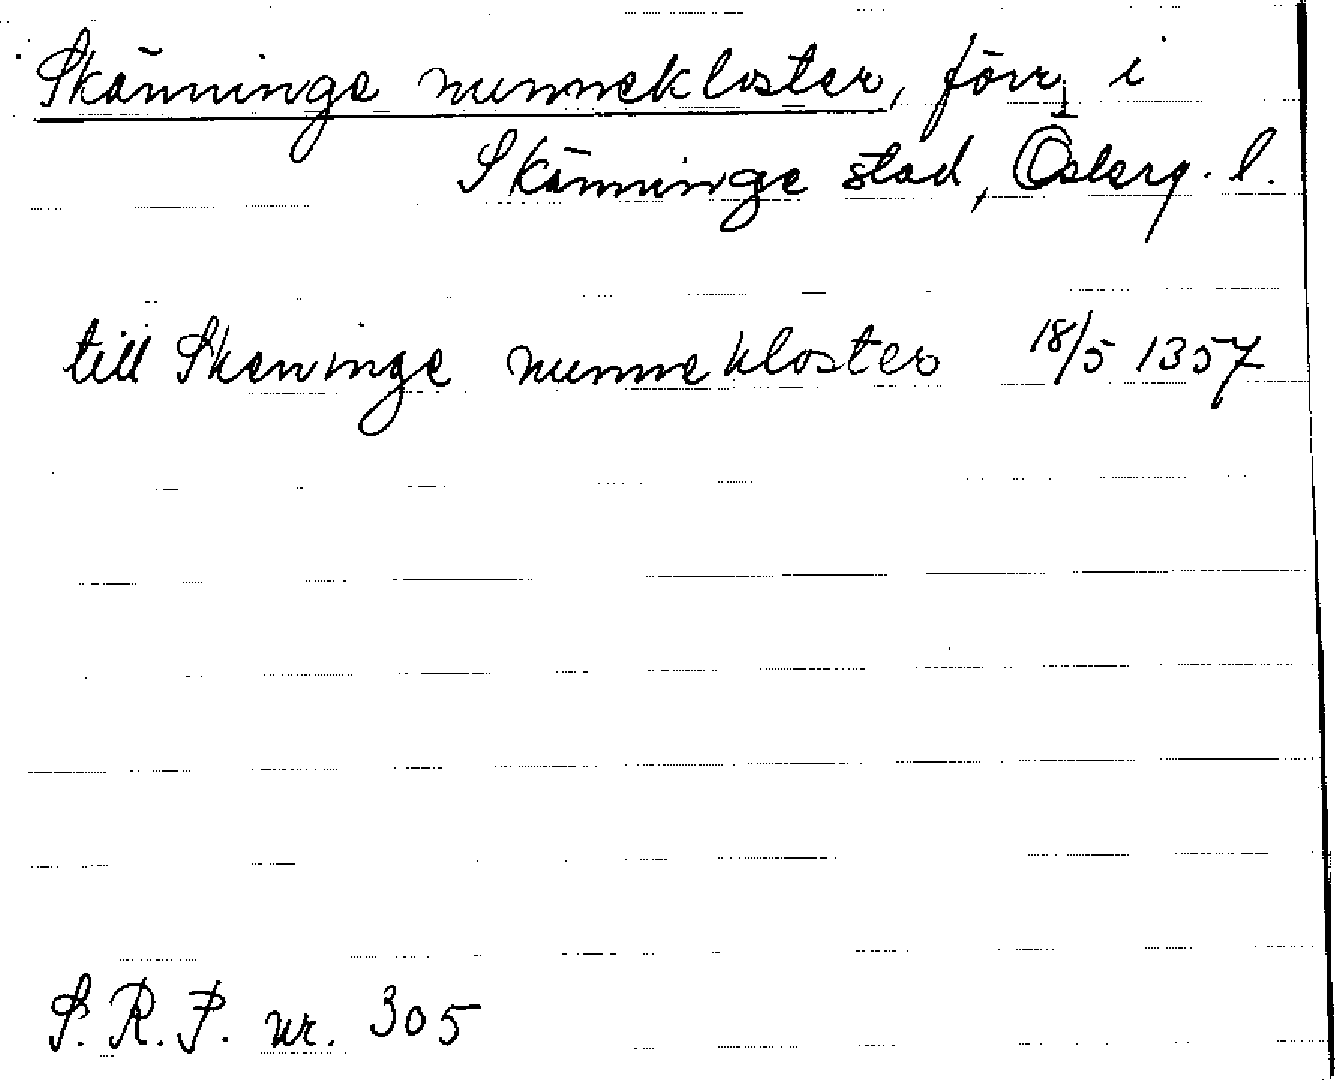 Skänninge nunnekloster, förr i
Skänninge stad, Österg. l.
till Skeninge nunnekloster 18/5 1357
S.R.P. nr. 305